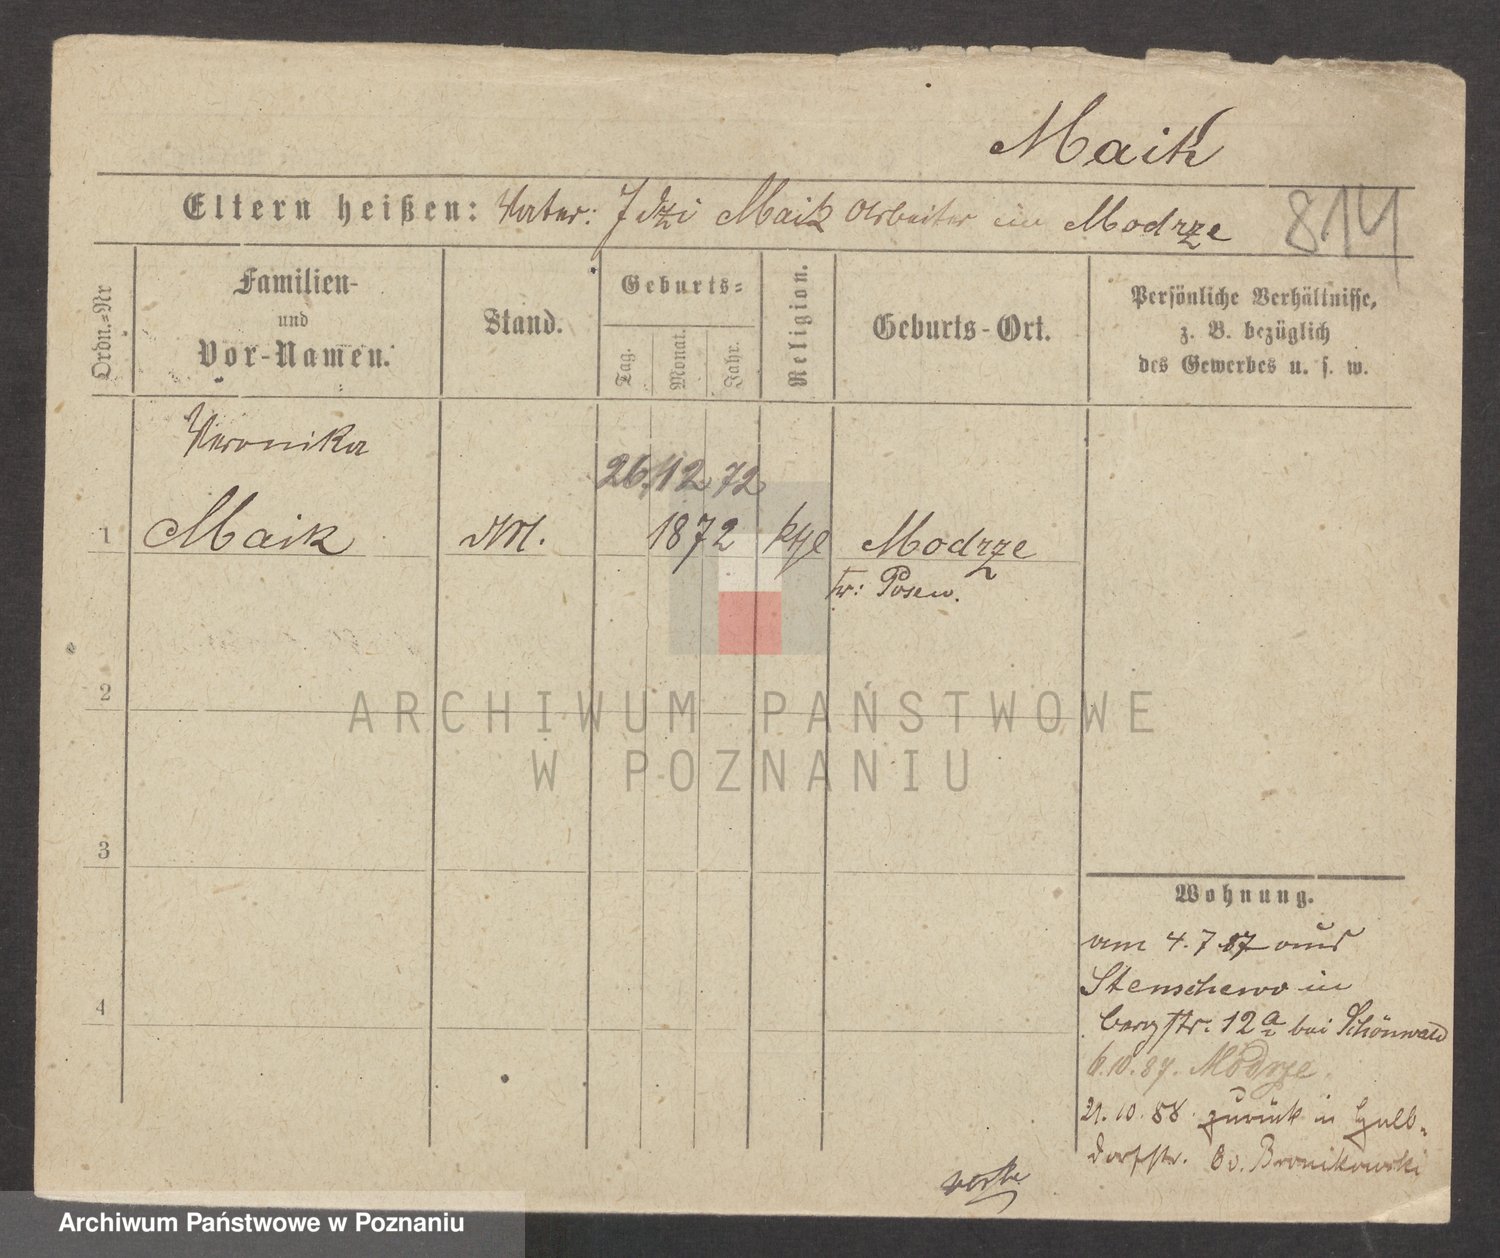 Maik
Eltern heißen: Vater: Idzi Maik Arbeiter in Modrze
814
Ordn.-Nr
Familien-
und
Vor-Namen.
Stand.
Geburts-
Tag.
Monat.
Jahr.
Religion.
Geburts-Ort.
Persönliche Verhältnisse,
z. B. bezüglich
des Gewerbes u. s. w.
Veronika
26. 12 72
1 Maik 1872 kth Modrze
Kr: Posen.
2
ARCHIWUM PAŃSTWOWE
W POZNANIU
3
Wohnung.
am 4.7 87 aus
Stenschewo in
4
bergstr. 12 a bei Schönwald
6.10.87. Modrze.
21.10.88 zurück in Halb-
dorfstr. Bronikowski
Archiwum Państwowe w Poznaniu